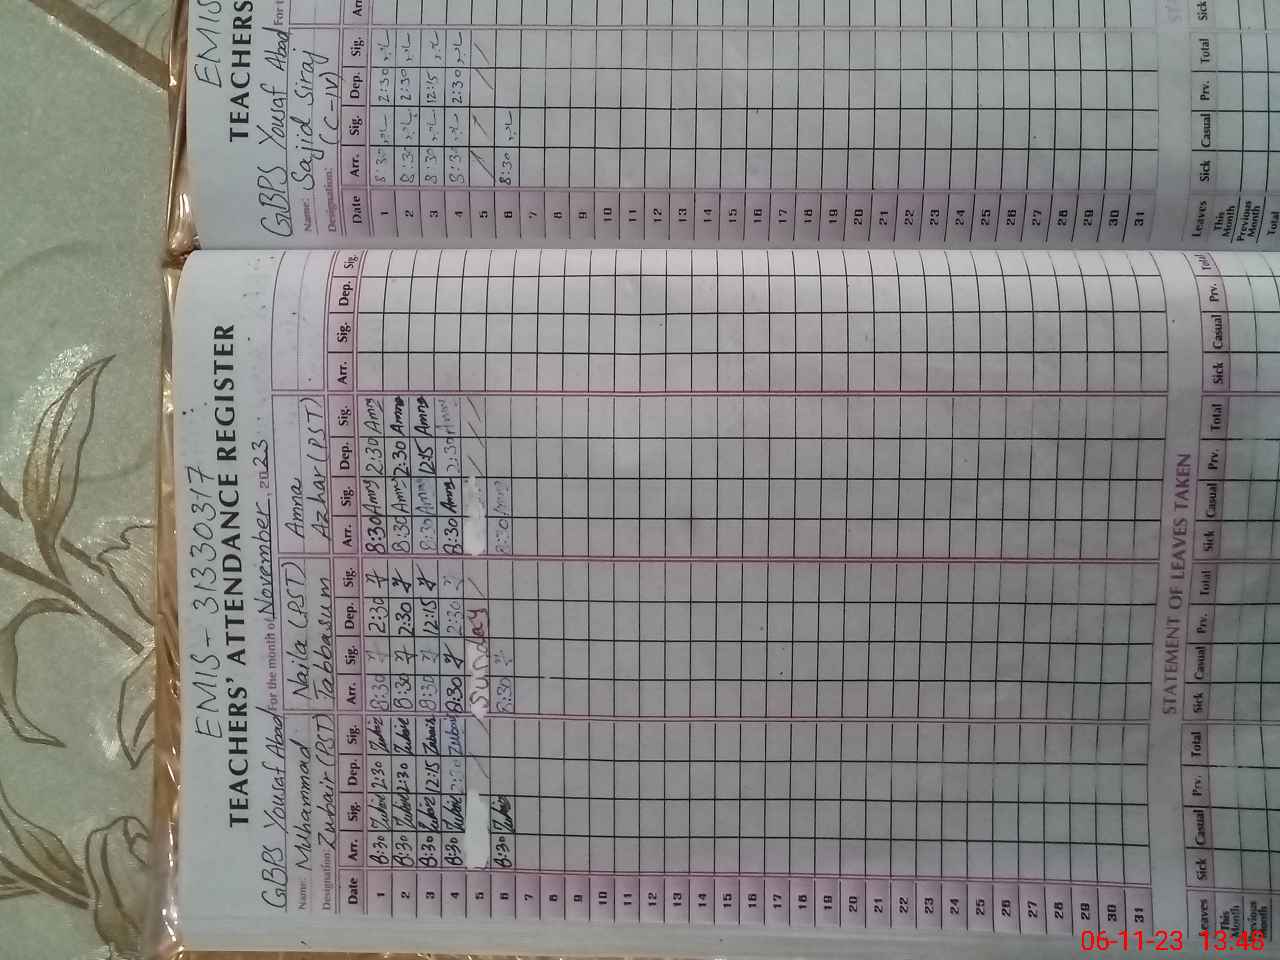 EMIS - 31330317
TEACHERS' ATTENDANCE REGISTER
GBPS Yousaf Abad For the month of November, 2023
Name: Muhammad Naila (PST) Amna
Designation: Zubair (PST) Tabbasum Azhar (PST)
Date Arr. Sig. Dep. Sig. Arr. Sig. Dep. Sig. Arr. Sig. Dep. Sig. Arr. Sig. Dep. Sig.
1 8:30 Zubair 2:30 Zubair 8:30 2:30 8:30 Amna 2:30 Amna
2 8:30 Zubair 2:30 Zubair 8:30 2:30 8:30 Amna 2:30 Amna
3 8:30 Zubair 12:15 Zubair 8:30 12:15 8:30 Amna 12:15 Amna
4 8:30 Zubair 2:30 Zubair 8:30 2:30 8:30 Amna 2:30 Amna
5 Sunday
6 8:30 Zubair 8:30 8:30 Amna
7
8
9
10
11
12
13
14
15
16
17
18
19
20
21
22
23
24
25
26
27
28
29
30
31
STATEMENT OF LEAVES TAKEN
Leaves Sick Casual Prv. Total Sick Casual Prv. Total Sick Casual Prv. Total Sick Casual Prv. Total
This Month
Previous Month
EMIS
TEACHERS
GBPS Yousaf Abad For t
Name: Sajid Siraj
Designation: (C-IV)
Date Arr. Sig. Dep. Sig. Arr
1 8:30 2:30
2 8:30 2:30
3 8:30 12:15
4 8:30 2:30
5
6 8:30
7
8
9
10
11
12
13
14
15
16
17
18
19
20
21
22
23
24
25
26
27
28
29
30
31
STA
Leaves Sick Casual Prv. Total Sick
This Month
Previous Month
Total
06-11-23 13:48